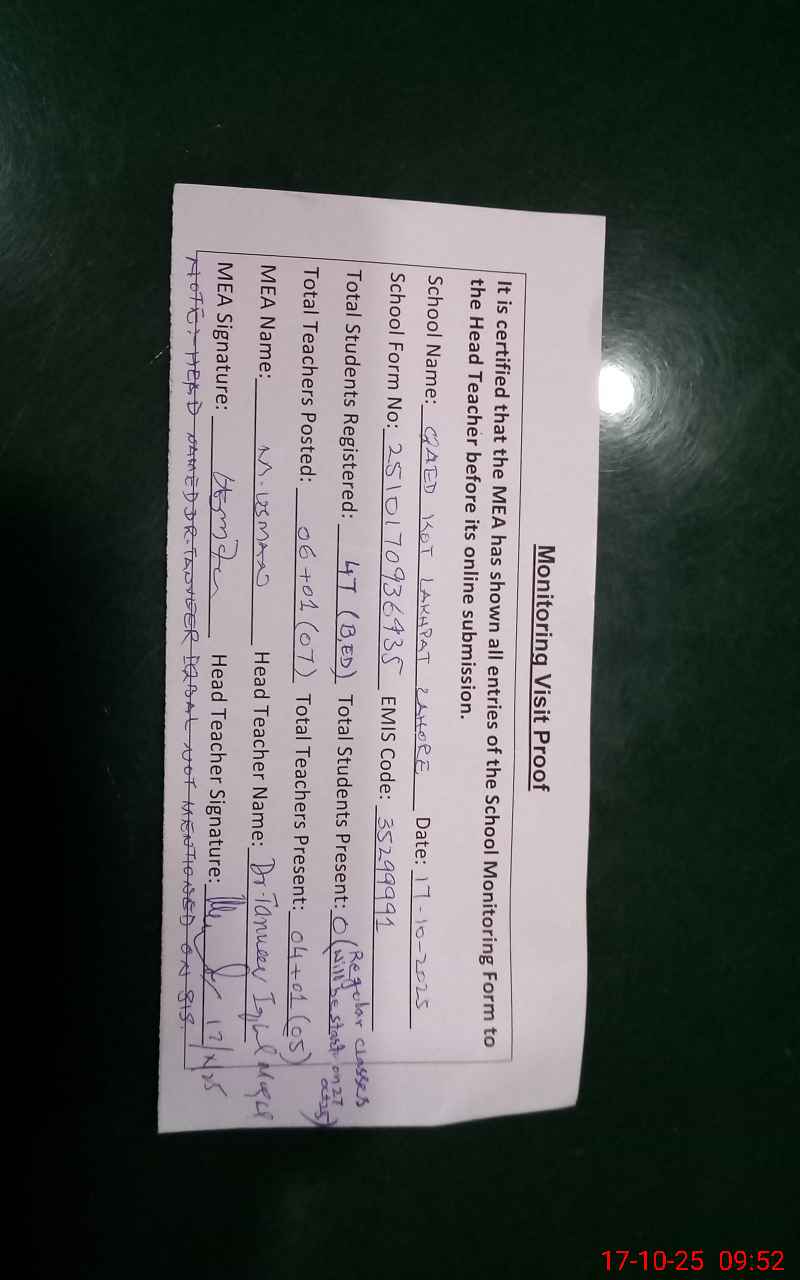 Monitoring Visit Proof
It is certified that the MEA has shown all entries of the School Monitoring Form to
the Head Teacher before its online submission.
School Name: QAED KOT LAKHPAT LAHORE Date: 17-10-2025
School Form No: 2510170936435 EMIS Code: 35299991
Total Students Registered: 47 (B.ED) Total Students Present: 0 (Regular classes will be start on 27 oct 25)
Total Teachers Posted: 06+01(07) Total Teachers Present: 04+01(05)
MEA Name: M. USMAN Head Teacher Name: Dr. Tanveer Iqbal
MEA Signature: Head Teacher Signature:
NOTE:- HEAD NAMED DR. TANVEER IQBAL NOT MENTIONED ON SIS.
17-10-25 09:52